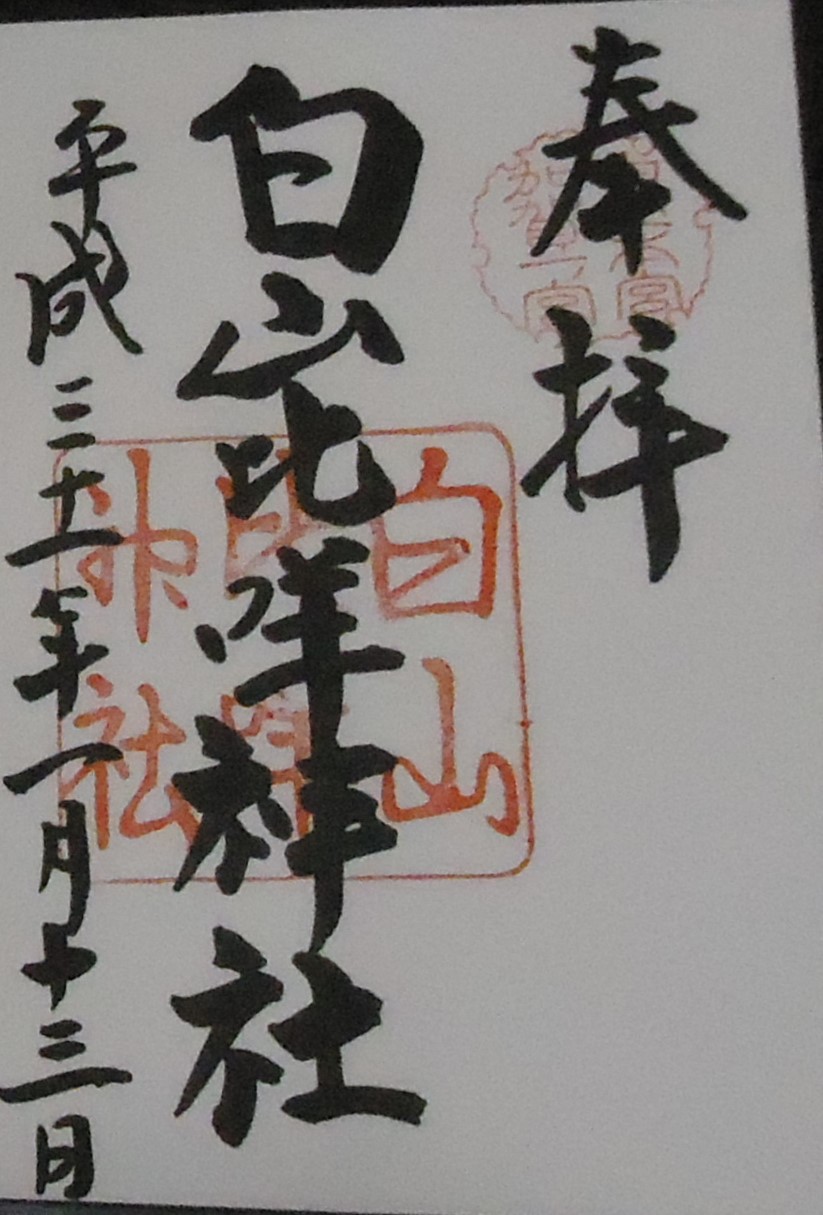 奉拝
加賀一宮
白山比咩神社
白山
比咩
神社
平成三十一年一月十三日